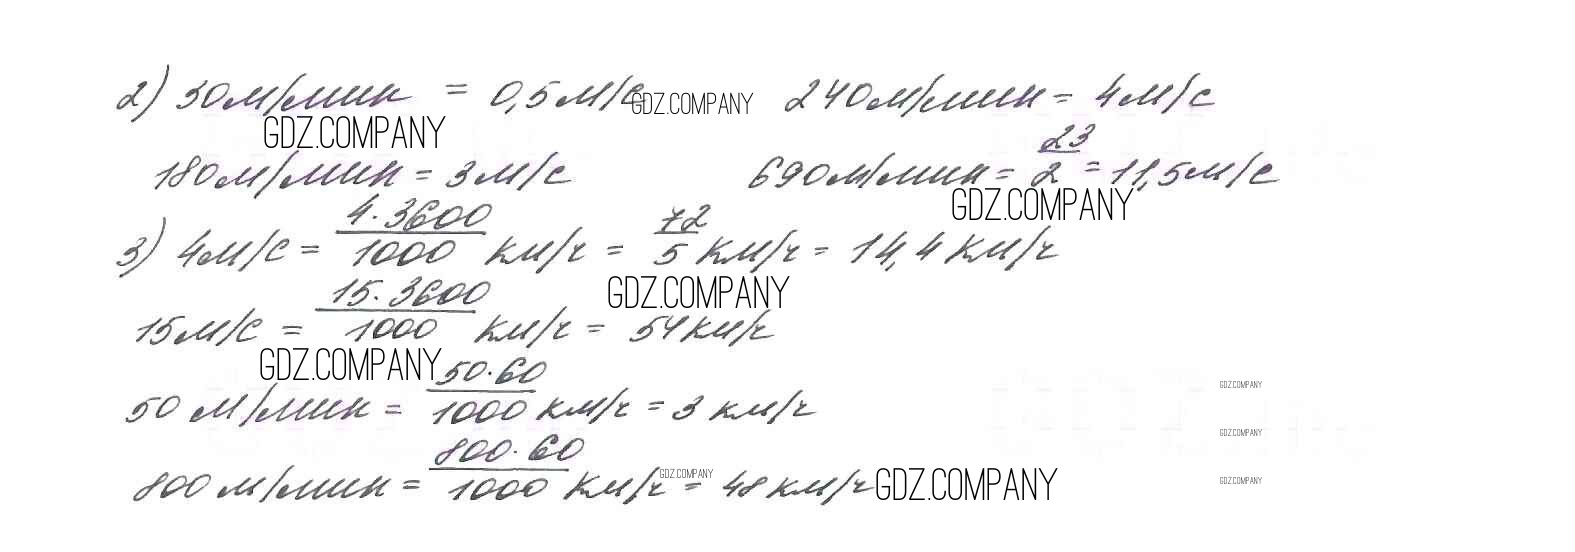 2) 30м/мин = 0,5м/с GDZ.COMPANY 240м/мин = 4м/с
GDZ.COMPANY
180м/мин = 3м/с 690м/мин = 23/2 = 11,5м/с
GDZ.COMPANY
3) 4м/с = 4·3600/1000 км/ч = 72/5 км/ч = 14,4 км/ч
GDZ.COMPANY
15м/с = 15·3600/1000 км/ч = 54км/ч
GDZ.COMPANY
GDZ.COMPANY
50 м/мин = 50·60/1000 км/ч = 3 км/ч
GDZ.COMPANY
800 м/мин = 800·60/1000 км/ч = 48 км/ч GDZ.COMPANY
GDZ.COMPANY
GDZ.COMPANY